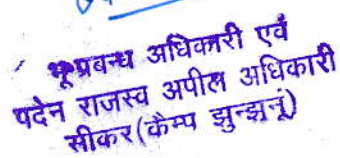 भूप्रबन्ध अधिकारी एवं
पदेन राजस्व अपील अधिकारी
सीकर(कैम्प झुन्झनूं)